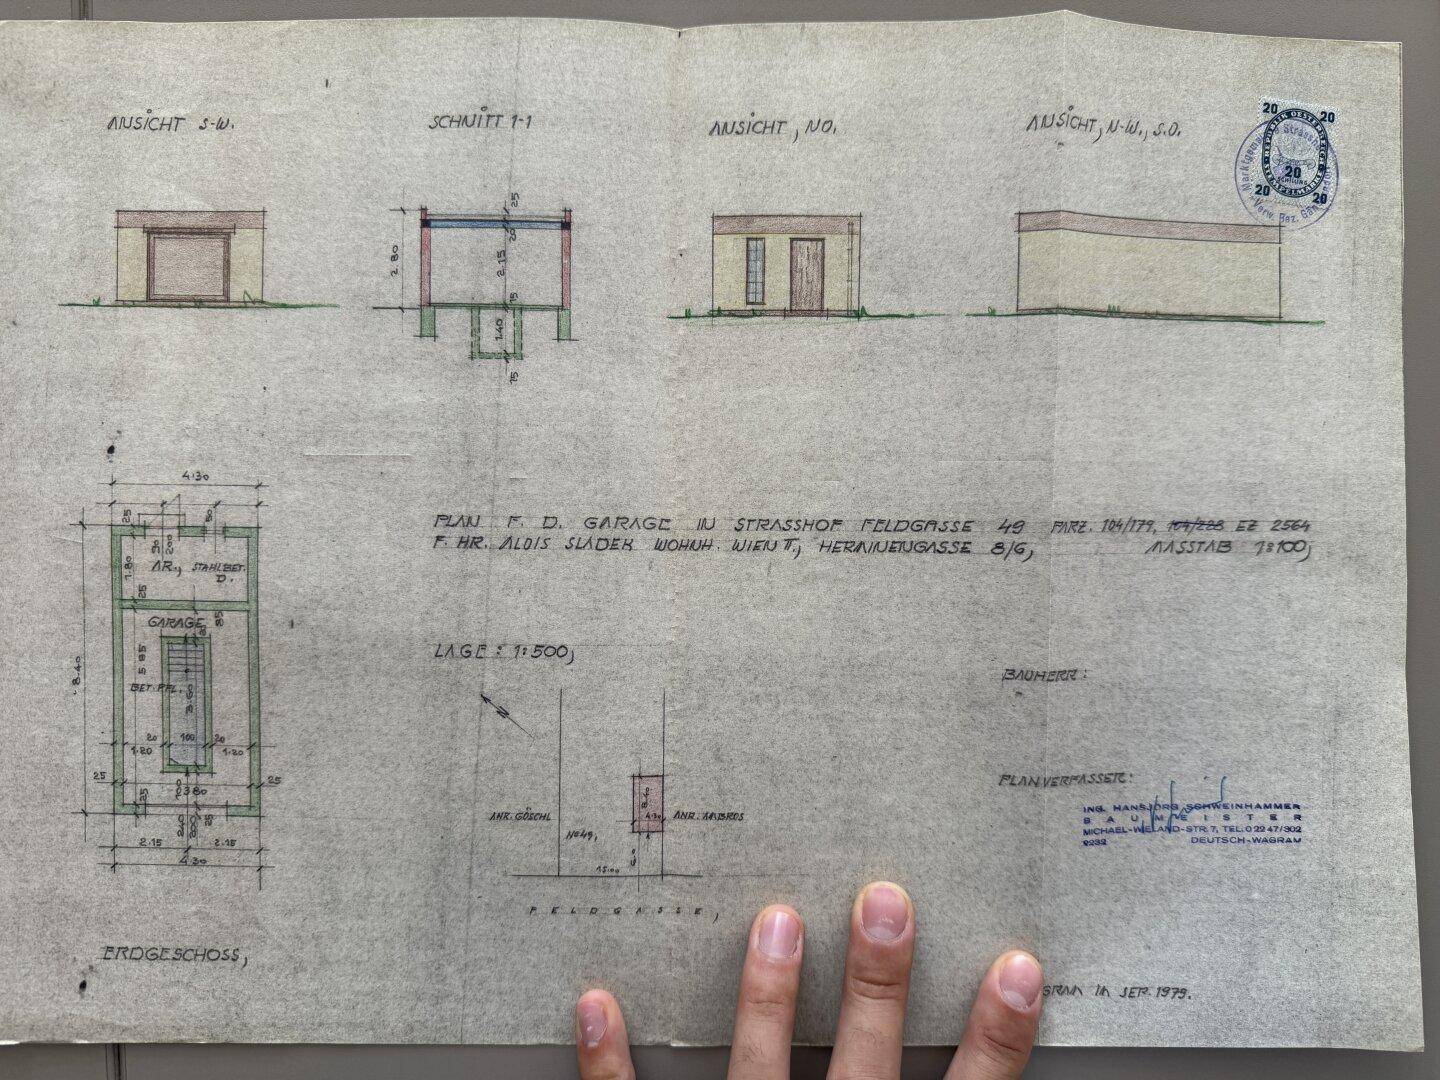 ANSICHT S-W.
SCHNITT 1-1
ANSICHT, NO.
ANSICHT, N-W., S.O.
20 20
REPUBLIK OESTERREICH
20
SCHILLING
STEMPELMARKE
20 20
Marktgemeinde Strasshof
Verw. Bez. Gänserndorf
2.80
25
20
2.15
15
1.40
15
4.30
25
50
90
200
AR., STAHLBET.
D.
1.80
25
GARAGE
85
5.85
BET. PFL.
3.60
8.40
20 100 20
1.20 1.20
25 25
100
3.80
25 25
240
200
2.15 2.15
4.30
ERDGESCHOSS,
PLAN F. D. GARAGE IN STRASSHOF FELDGASSE 49 PARZ. 104/179, 104/228 EZ 2564
F. HR. ALOIS SLADEK WOHNH. WIEN II., HERMINENGASSE 8/6, MASSTAB 1:100,
LAGE: 1:500,
N
8.40
4.30
ANR. GÖSCHL
ANR. AMBROS
No 49,
15.00
FELDGASSE,
BAUHERR:
PLANVERFASSER:
ING. HANSJÖRG SCHWEINHAMMER
BAUMEISTER
MICHAEL-WIELAND-STR. 7, TEL. 0 22 47/302
2232 DEUTSCH-WAGRAM
GRAM IM SEP. 1979.